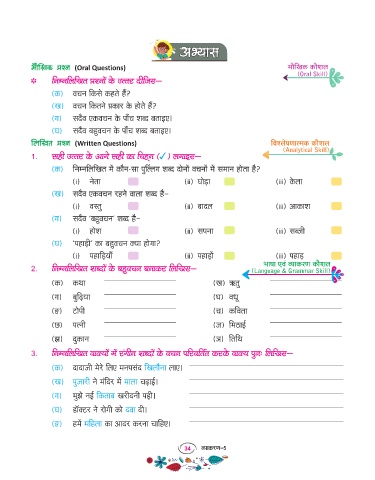 अभ्यास
मौखिक प्रश्न (Oral Questions)
मौखिक कौशल
(Oral Skill)
निम्नलिखित प्रश्नों के उत्तर दीजिए—
(क) वचन किसे कहते हैं?
(ख) वचन कितने प्रकार के होते हैं?
(ग) सदैव एकवचन के पाँच शब्द बताइए।
(घ) सदैव बहुवचन के पाँच शब्द बताइए।
लिखित प्रश्न (Written Questions)
विश्लेषणात्मक कौशल
(Analytical Skill)
1. सही उत्तर के आगे सही का चिह्न (✓) लगाइए—
(क) निम्नलिखित में कौन-सा पुल्लिंग शब्द दोनों वचनों में समान होता है?
(i) नेता (ii) घोड़ा (iii) केला
(ख) सदैव एकवचन रहने वाला शब्द है–
(i) वस्तु (ii) बादल (iii) आकाश
(ग) सदैव 'बहुवचन' शब्द है–
(i) होश (ii) सपना (iii) सब्जी
(घ) 'पहाड़ी' का बहुवचन क्या होगा?
(i) पहाड़ियाँ (ii) पहाड़ों (iii) पहाड़
भाषा एवं व्याकरण कौशल
(Language & Grammar Skill)
2. निम्नलिखित शब्दों के बहुवचन बनाकर लिखिए—
(क) कथा (ख) ऋतु
(ग) बुढ़िया (घ) वधू
(ङ) टोपी (च) कविता
(छ) पत्नी (ज) मिठाई
(झ) दुकान (ञ) तिथि
3. निम्नलिखित वाक्यों में रंगीन शब्दों के वचन परिवर्तित करके वाक्य पुनः लिखिए—
(क) दादाजी मेरे लिए मनपसंद खिलौना लाए।
(ख) पुजारी ने मंदिर में माला चढ़ाई।
(ग) मुझे नई किताब खरीदनी पड़ी।
(घ) डॉक्टर ने रोगी को दवा दी।
(ङ) हमें महिला का आदर करना चाहिए।
34 व्याकरण–5